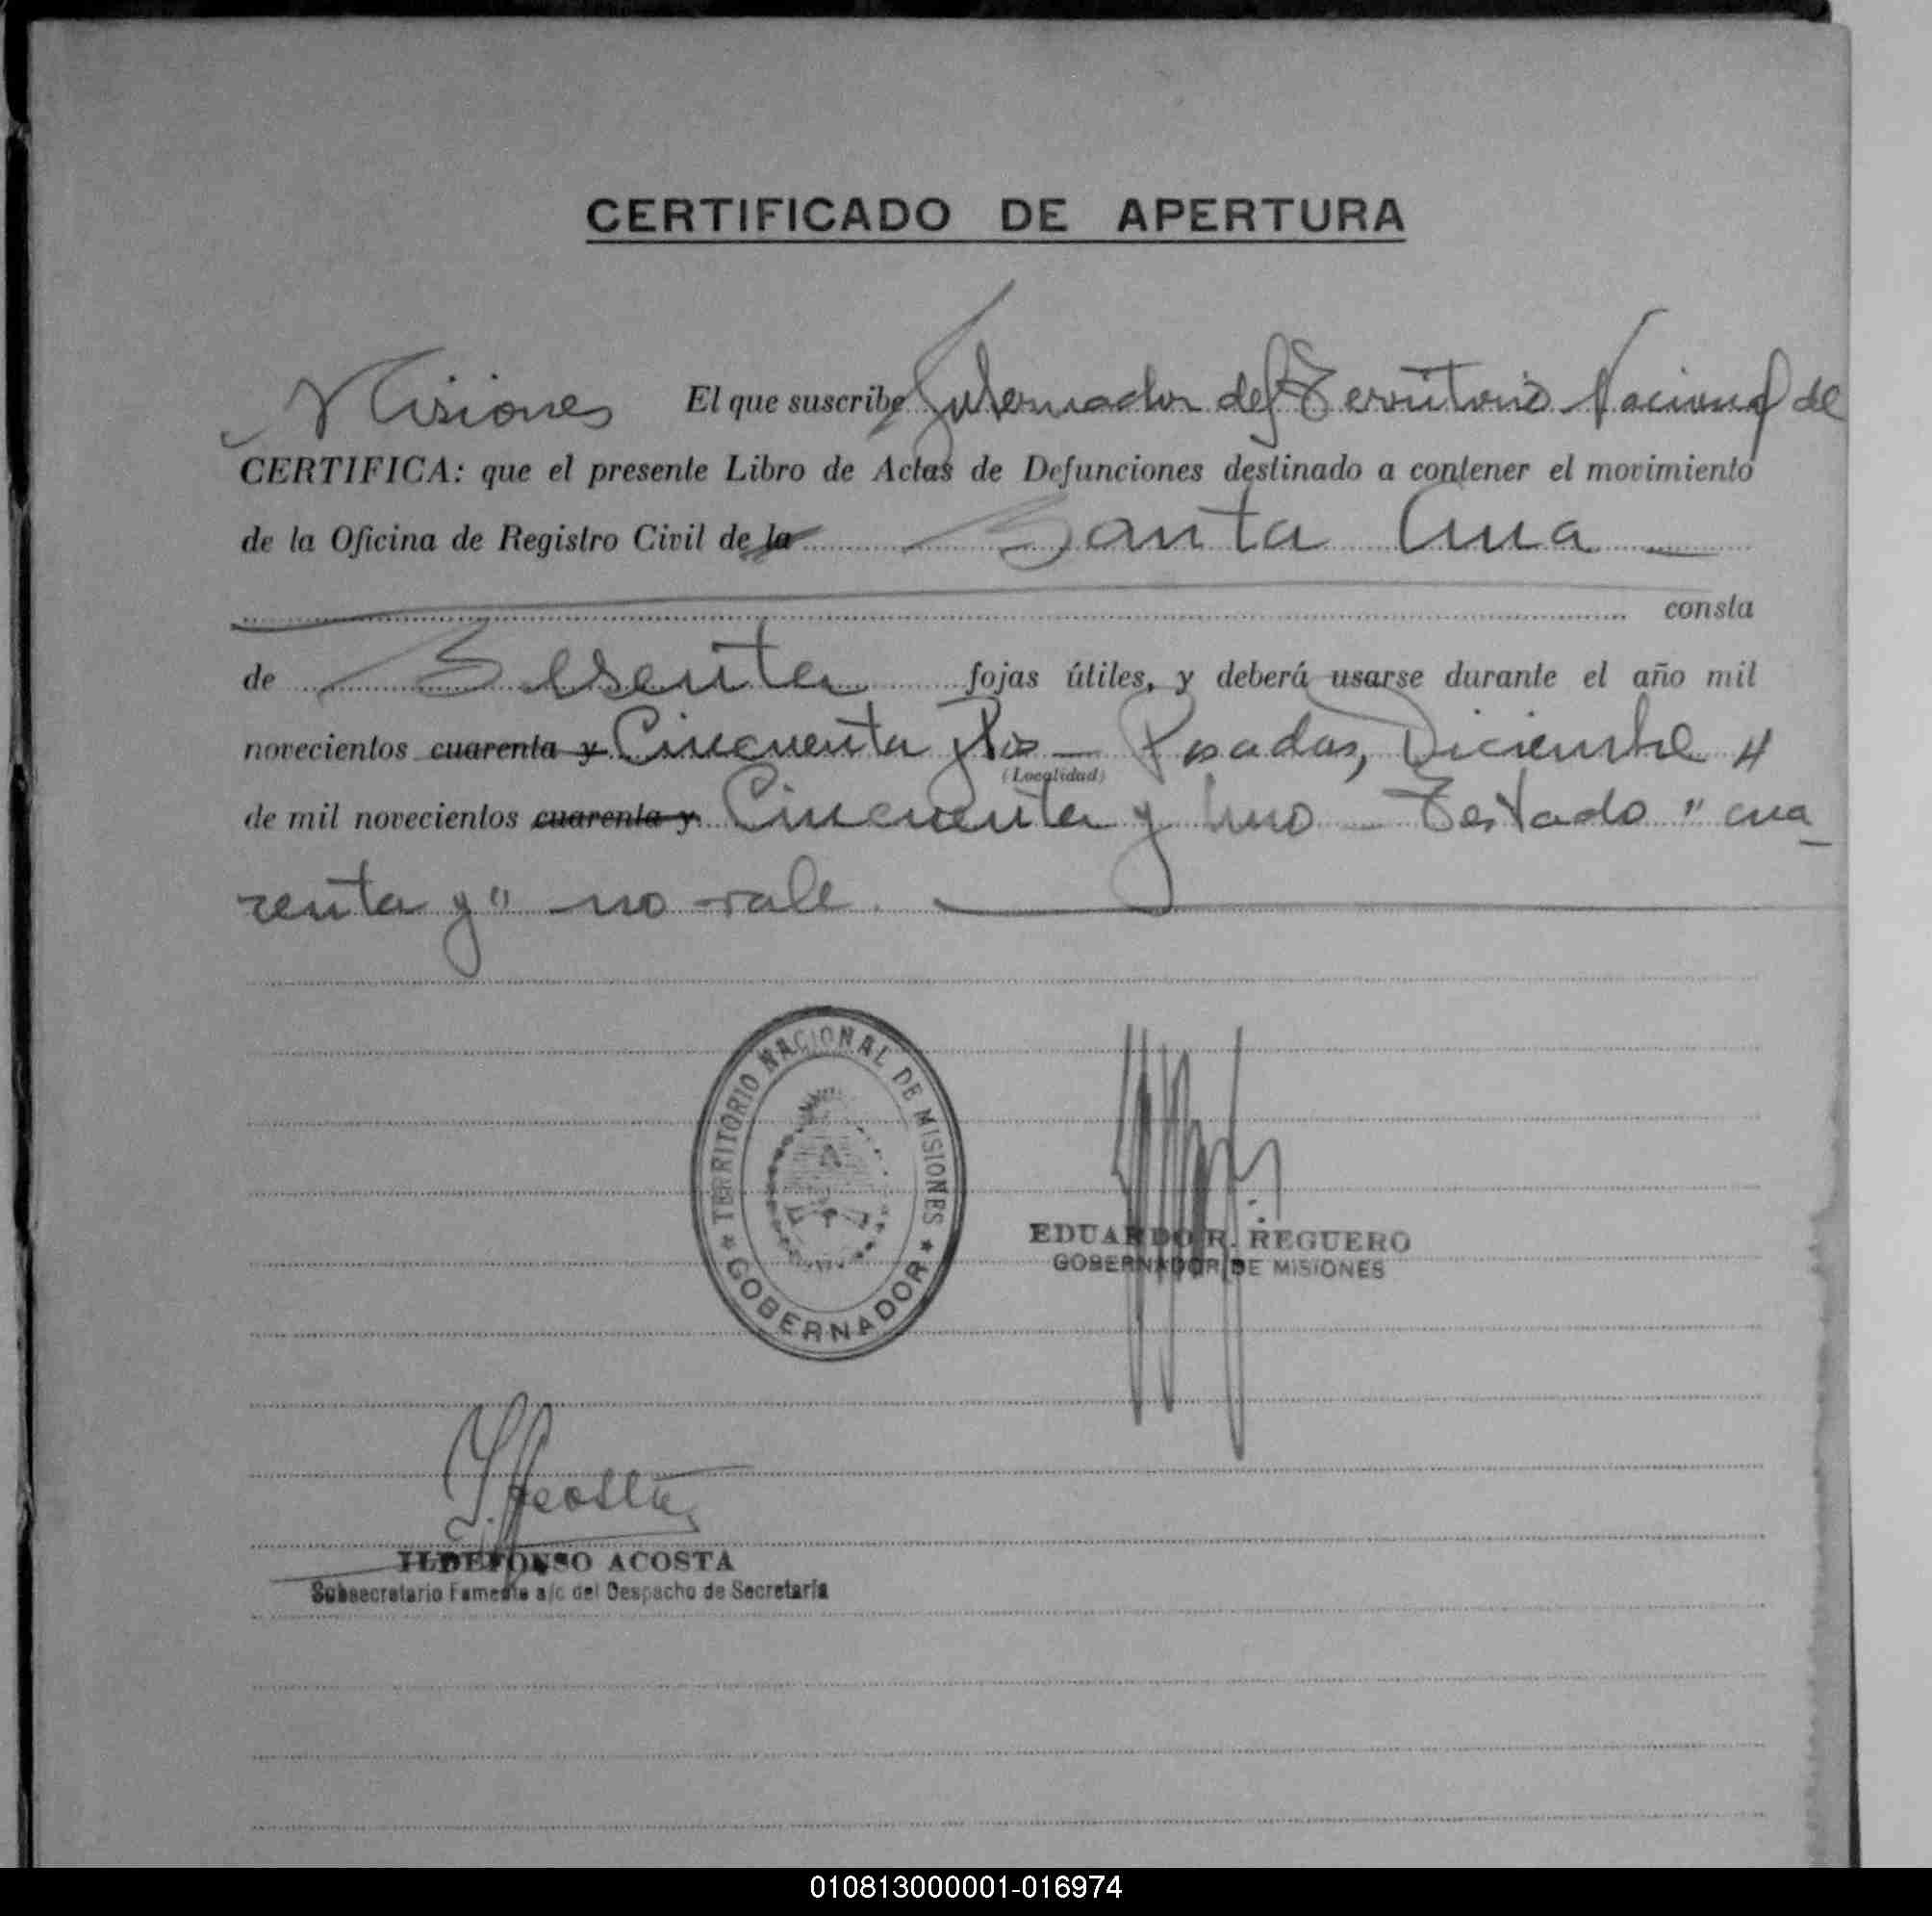 CERTIFICADO DE APERTURA
El que suscribe Gobernador del Territorio Nacional de
Misiones
CERTIFICA: que el presente Libro de Actas de Defunciones destinado a contener el movimiento
de la Oficina de Registro Civil de la Santa Ana
consta
de Sesenta fojas útiles, y deberá usarse durante el año mil
novecientos cuarenta y Cincuenta y dos - Posadas, Diciembre 4
(Localidad)
de mil novecientos cuarenta y Cincuenta y uno - Testado "cua
renta y" no vale.
TERRITORIO NACIONAL DE MISIONES
GOBERNADOR
EDUARDO R. REGUERO
GOBERNADOR DE MISIONES
I. Acosta
ILDEFONSO ACOSTA
Subsecretario a/c del Despacho de Secretaría
010813000001-016974